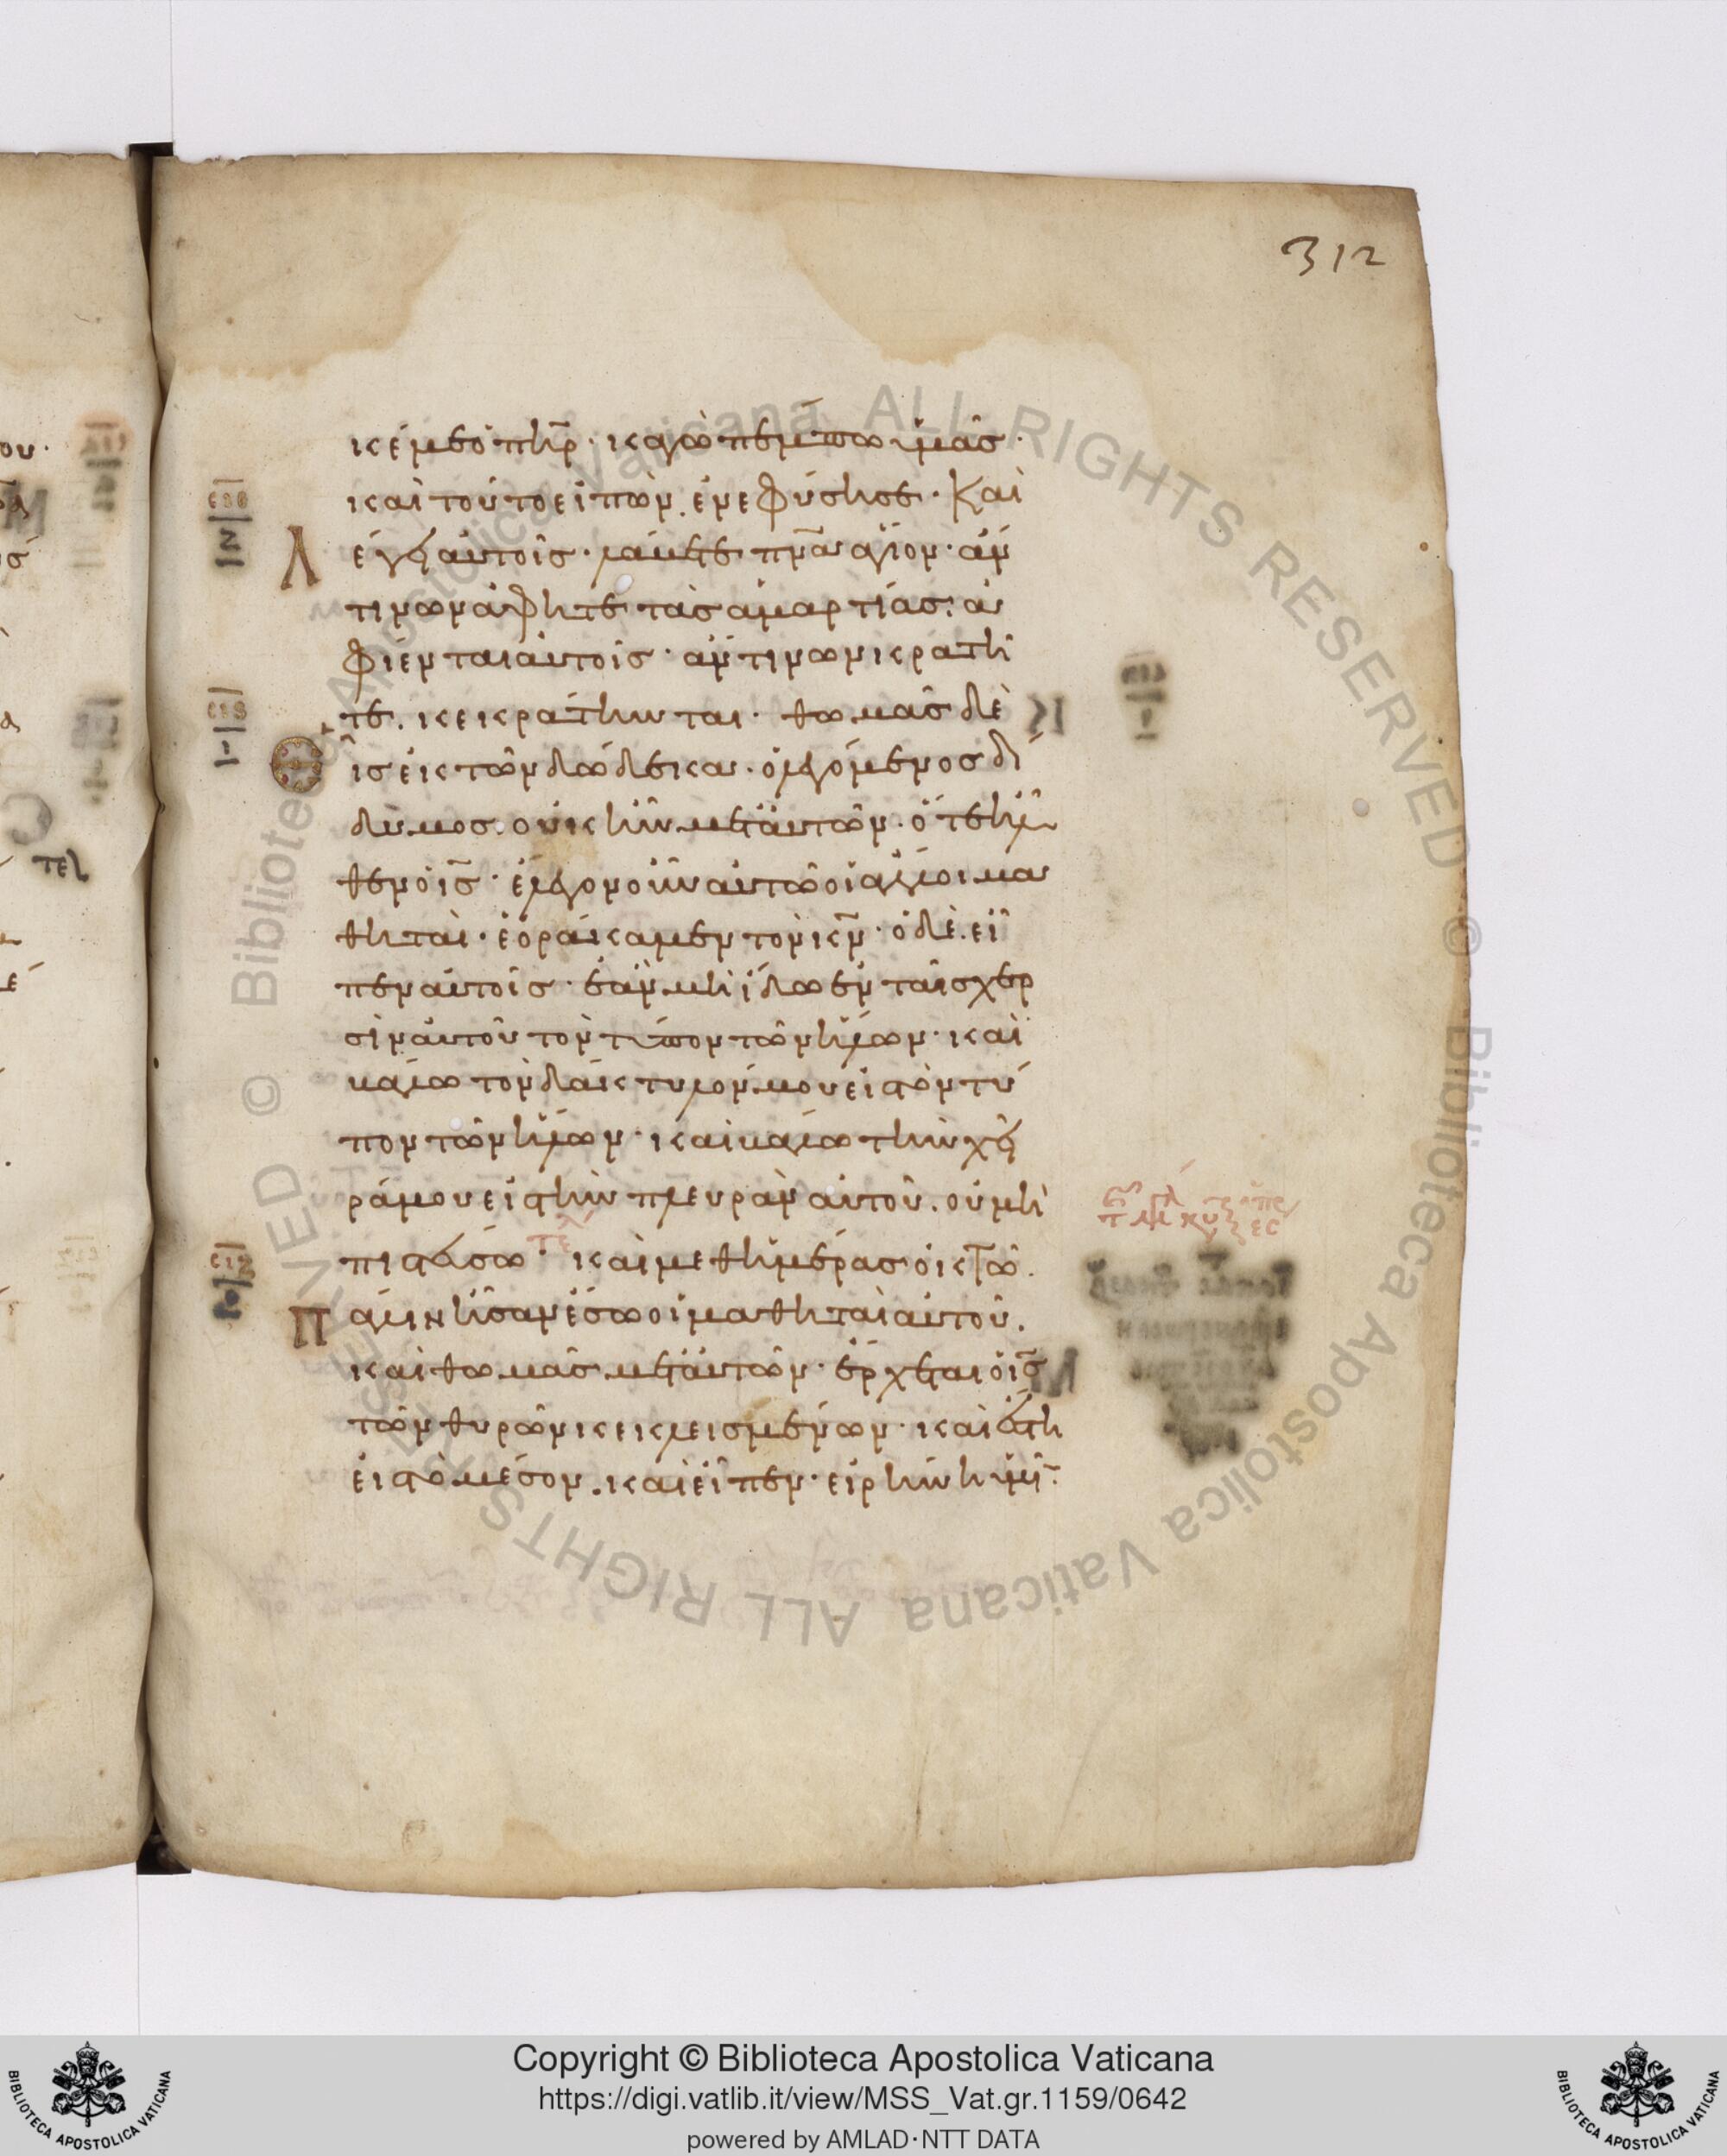 312
κέ με ὁ πη̅ρ· κἀγὼ πέμπω ὑμᾶς·
καὶ τοῦτο εἰπὼν. ἐνεφύσησε· Καὶ
λέγει αὐτοῖς· λάβετε πν̅α ἅγιον· ἄν
τινων ἀφῆτε τὰς ἁμαρτίας· ἀ
φίενται αὐτοῖς· ἄν τινων κρατῆ
τε. κεκράτηνται· θωμᾶς δὲ
εἷς ἐκ τῶν δώδεκα· ὁ λεγόμενος δί
δυμος. οὐκ ἦν μετ' αὐτῶν· ὅτε ἦλ
θεν ὁ ι̅ς· ἔλεγον οὖν αὐτῶ οἱ ἄλλοι μα
θηταὶ· ἑοράκαμεν τὸν κ̅ν· ὁ δὲ. εἶ
πεν αὐτοῖς· ἐὰν μὴ ἴδω ἐν ταῖς χερ
σὶν αὐτοῦ τὸν τύπον τῶν ἥλων· καὶ
βάλω τὸν δάκτυλόν μου εἰς τὸν τύ
πον τῶν ἥλων· καὶ βάλω τὴν χεῖ
ρά μου εἰς τὴν πλευρὰν αὐτοῦ. οὐ μὴ
πιστεύσω· καὶ μεθ' ἡμέρας ὀκτὼ.
πάλιν ἦσαν ἔσω οἱ μαθηταὶ αὐτοῦ.
καὶ θωμᾶς μετ' αὐτῶν· ἔρχεται ὁ ι̅ς
τῶν θυρῶν κεκλεισμένων· καὶ ἔστη
εἰς τὸ μέσον. καὶ εἶπεν· εἰρήνη ὑμῖ̅·
τελ
Copyright © Biblioteca Apostolica Vaticana
https://digi.vatlib.it/view/MSS_Vat.gr.1159/0642
powered by AMLAD·NTT DATA
BIBLIOTECA APOSTOLICA VATICANA
BIBLIOTECA APOSTOLICA VATICANA
© Biblioteca Apostolica Vaticana ALL RIGHTS RESERVED
© Biblioteca Apostolica Vaticana ALL RIGHTS RESERVED